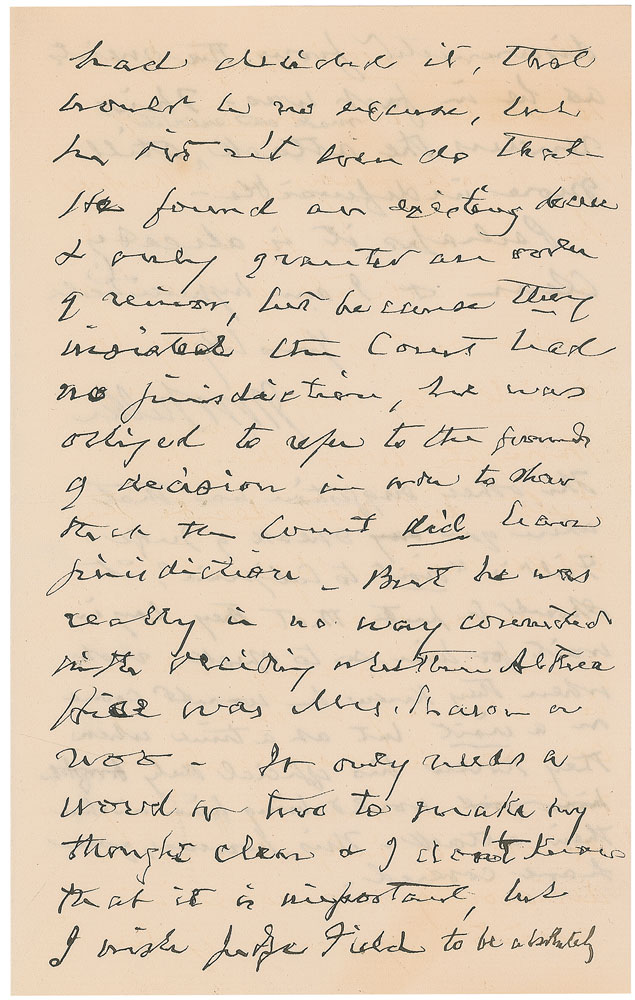 had decided it, that
would be no excuse, but
he did n't even do that
He found an existing decree
& only granted an order
of revivor, but because they
insisted the Court had
no jurisdiction, he was
obliged to refer to the grounds
of decision in order to show
that the Court did have
jurisdiction - But he was
really in no way connected
with deciding whether Althea
Hill was Mrs. Sharon or
not - It only needs a
word or two to make my
thought clear & I don't know
that it is important, but
I wish Judge Field to be absolutely